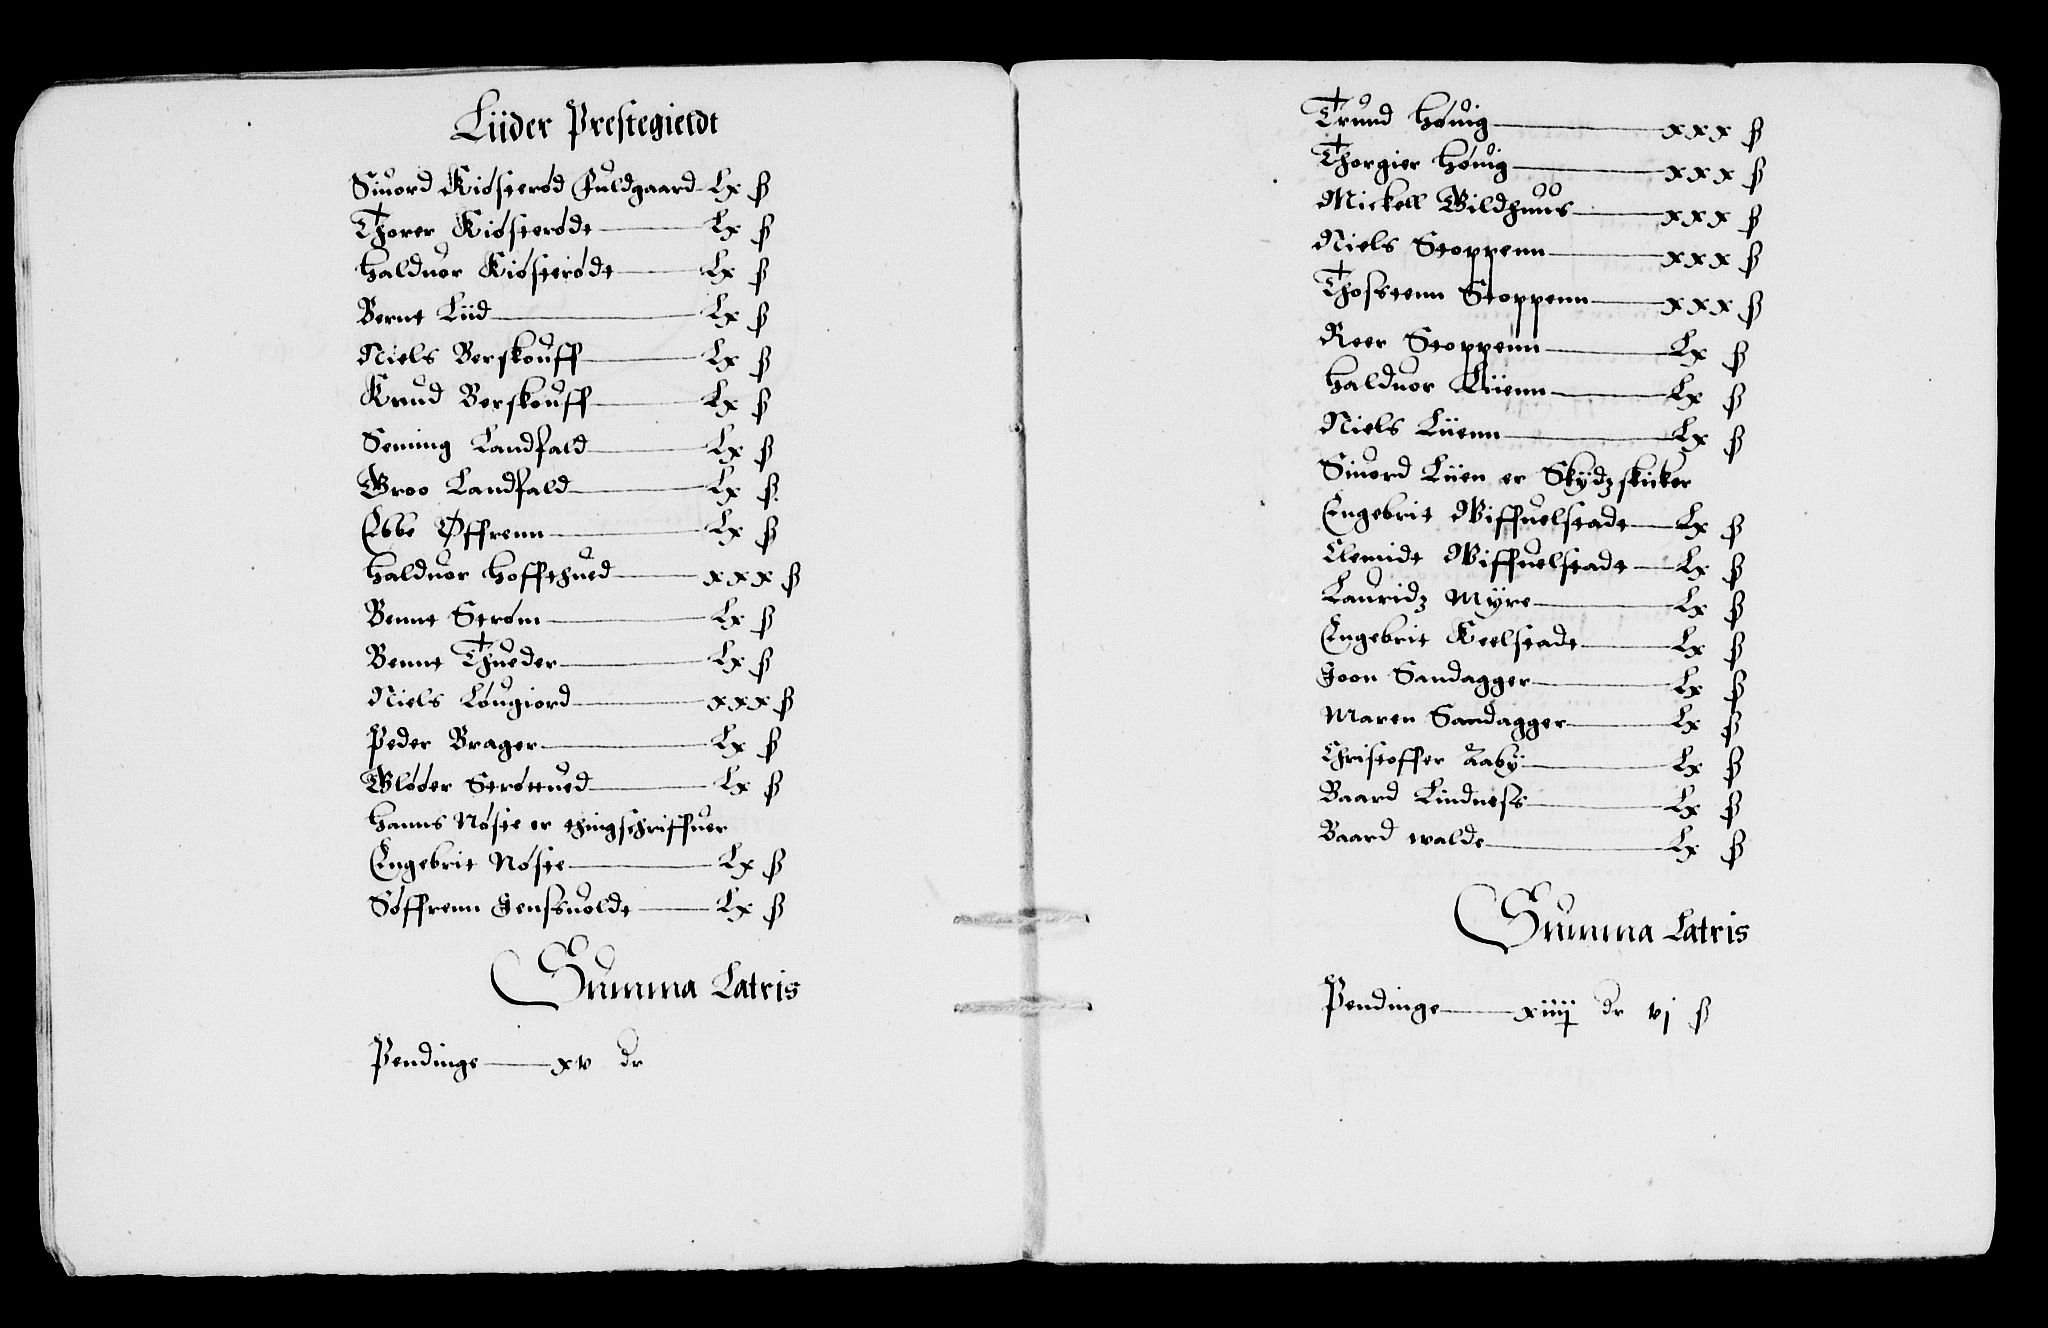 Lüder Prestegieldt
Siuord Kiøsterød Fuldgaard Lx ß
Thorer Kiøsterødt Lx ß
Halduor Kiøsterødt Lx ß
Bernt Lüd Lx ß
Niels Berskouff Lx ß
Knud Berskouff Lx ß
Seming Landfald Lx ß
Broo Landfald Lx ß
Ebbe Øffrenn Lx ß
Halduor Hoffthued xxx ß
Bennt Strøm Lx ß
Bennt Thueder Lx ß
Niels Løugiord xxx ß
Peder Brager Lx ß
Strøttued Lx ß
Hanns Nøste er thingschriffuer
Engebrit Nøste Lx ß
Søffrenn Jenssuoldt Lx ß
Summa Latris
Pendinge xv dr
Trund Høuig xxx ß
Thorgier Høuig xxx ß
Mickell Wildhuus xxx ß
Niels Stoppenn xxx ß
Thosstenn Stoppenn xxx ß
Reer Stoppenn Lx ß
Halduor Lüenn Lx ß
Niels Lüenn Lx ß
Siuord Lüen er Skÿdzskicker
Engebrit Wiffuelstadt Lx ß
Clemidt Wiffuelstadt Lx ß
Lauridz Mÿre Lx ß
Engebrit Keelstadt Lx ß
Joon Sandagger Lx ß
Maren Sandagger Lx ß
Christoffer Aabÿ Lx ß
Baard Lindness Lx ß
Baard walde Lx ß
Summa Latris
Pendinge xiiij dr vj ß